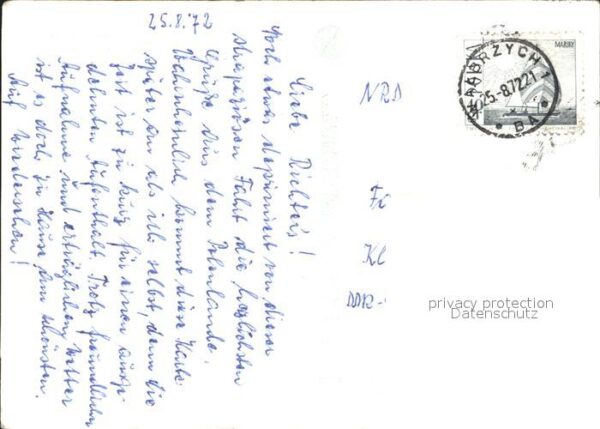 25.8.72
Liebe Richters!
Noch etwas deprimiert von dieser
strapaziösen Fahrt die herzlichsten
Grüße aus dem Polenlande.
Wahrscheinlich kommt diese Karte
später an als ich selbst, denn die
Zeit ist zu kurz für einen ausge-
dehnten Aufenthalt. Trotz freundlicher
Aufnahme und erträglichem Wetter
ist es doch zu Hause am schönsten.
Auf Wiedersehen!
NRD
Fa
Kl
DDR-
MARINY
WAŁBRZYCH 1
25.-8.72.21
* BA *
privacy protection
Datenschutz